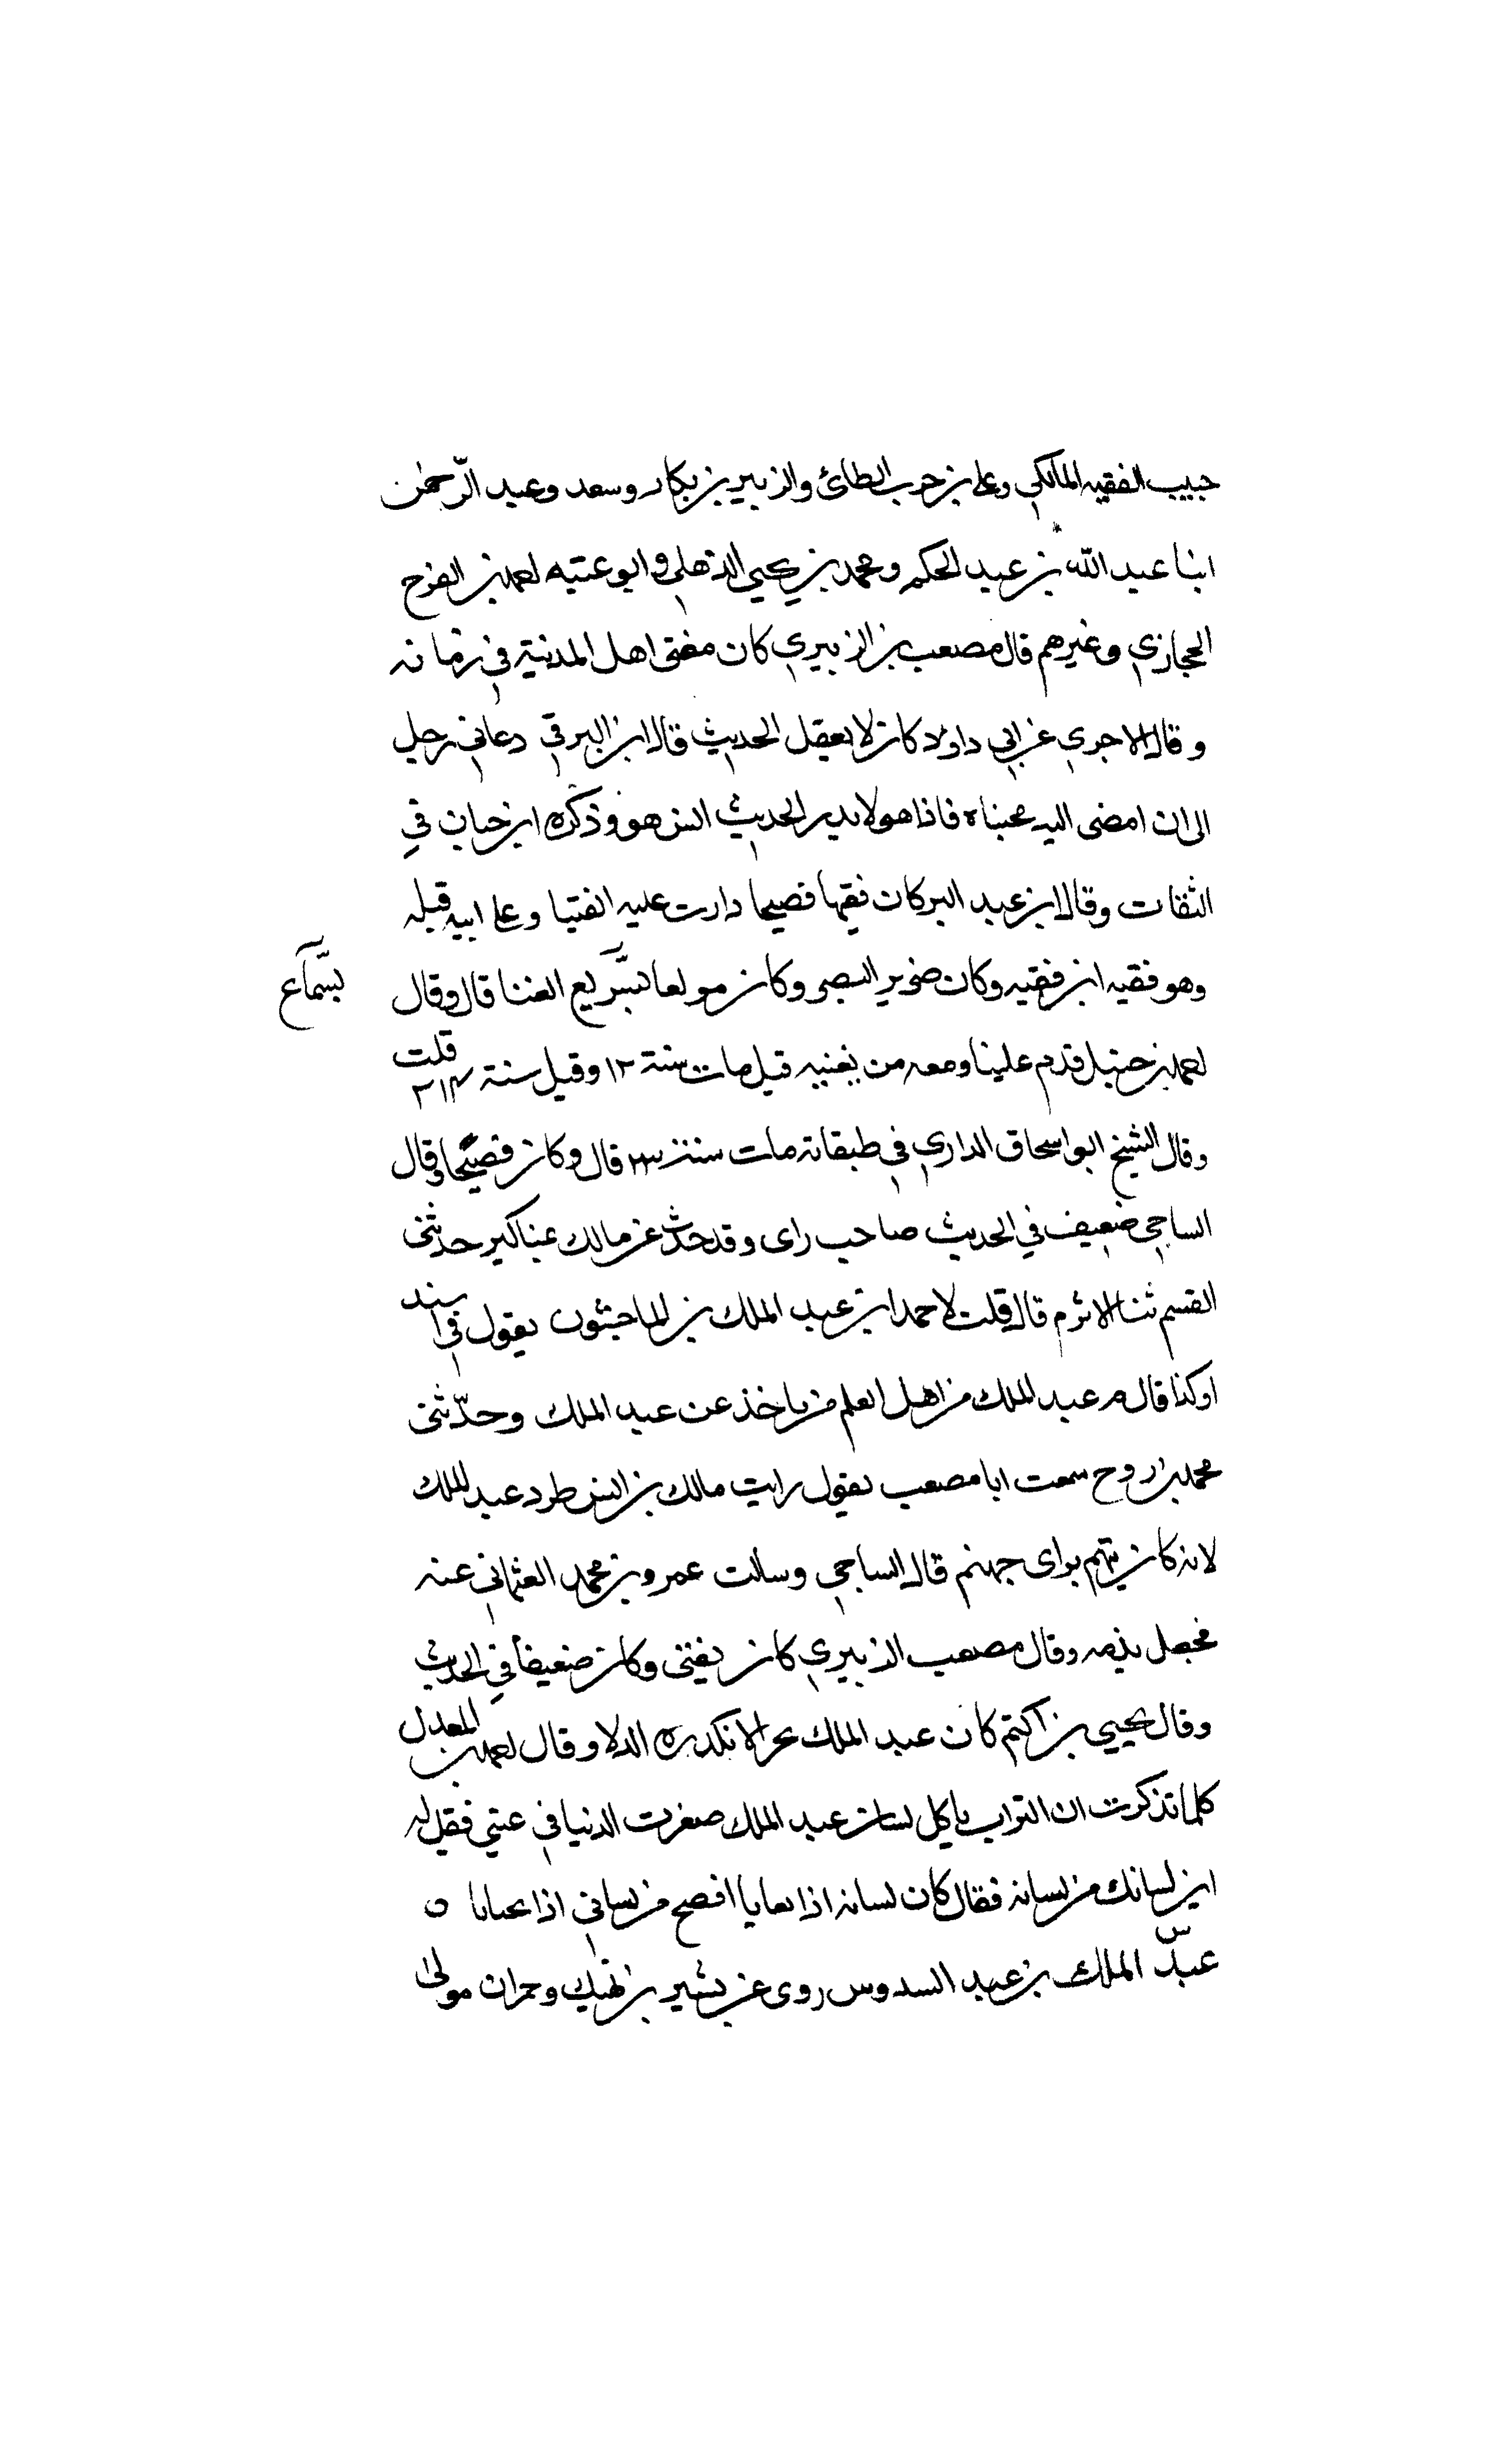 حبيب الفقيه المالكي وعلى بن حرب الطائ والزبير بن بكار وسعد وعبد الرّحمن
ابنا عبد الله بن عبد الحكم ومحمد بن يحيى الذهلي وابو عتبه احمد بن الفرج
الحجازي وغيرهم قال مصعب بن الزبيري كان مفتى اهل المدينة في زمانه
وقال الاجري عن ابي داود كان لا يعقل الحديث قال ابن البرقي دعاني رجل
الى ان امضى اليه فجئناه فاذا هو لا يدرى الحديث ايش هو وذكره ابن حبان في
الثقات وقال ابن عبد البر كان فقيها فصيحا دارت عليه الفتيا وعلى ابيه قبله
وهو فقيه ابن فقيه وكان ضرير البصر وكان مولعا الغنا قال وقال
بسماع
احمد بن حنبل قدم علينا ومعه من يغنيه قيل مات سنة ١٢ وقيل سنة ٢١٤ قلت
وقال الشيخ ابو اسحاق في طبقاته مات سنة قال وكان فصيحا وقال
الساجي ضعيف في الحديث صاحب راى وقد حدث عن مالك بمناكير حدثنى
القسم ثنا الاثرم قال قلت لاحمد ان عبد الملك بن الماجشون يقول في سند
او كذا قال من عبد الملك من اهل العلم من ياخذ عن عبد الملك وحدّثنى
محمد بن روح سمعت ابا مصعب يقول رايت مالك بن انس طرد عبد الملك
لانه كان يتهم براى جهنم قال الساجي وسالت عمرو بن محمد العثماني عنه
فجعل يذمه وقال مصعب الزبيري كان يفتى وكان ضعيفا في الحديث
وقال يحيى بن اكثم كان عبد الملك بحرا لا تكدره الدلا وقال احمد بن المعدل
كلما تذكرت ان التراب ياكل لسان عبد الملك صغرت الدنيا في عيني فقيل له
اين لسانك من لسانه فقال كان لسانه اذا تعايا افصح من لساني اذا تحايا ه
س
عبد الملك بن عبيد السدوس روى عن بشير بن نهيك وحمران مولى